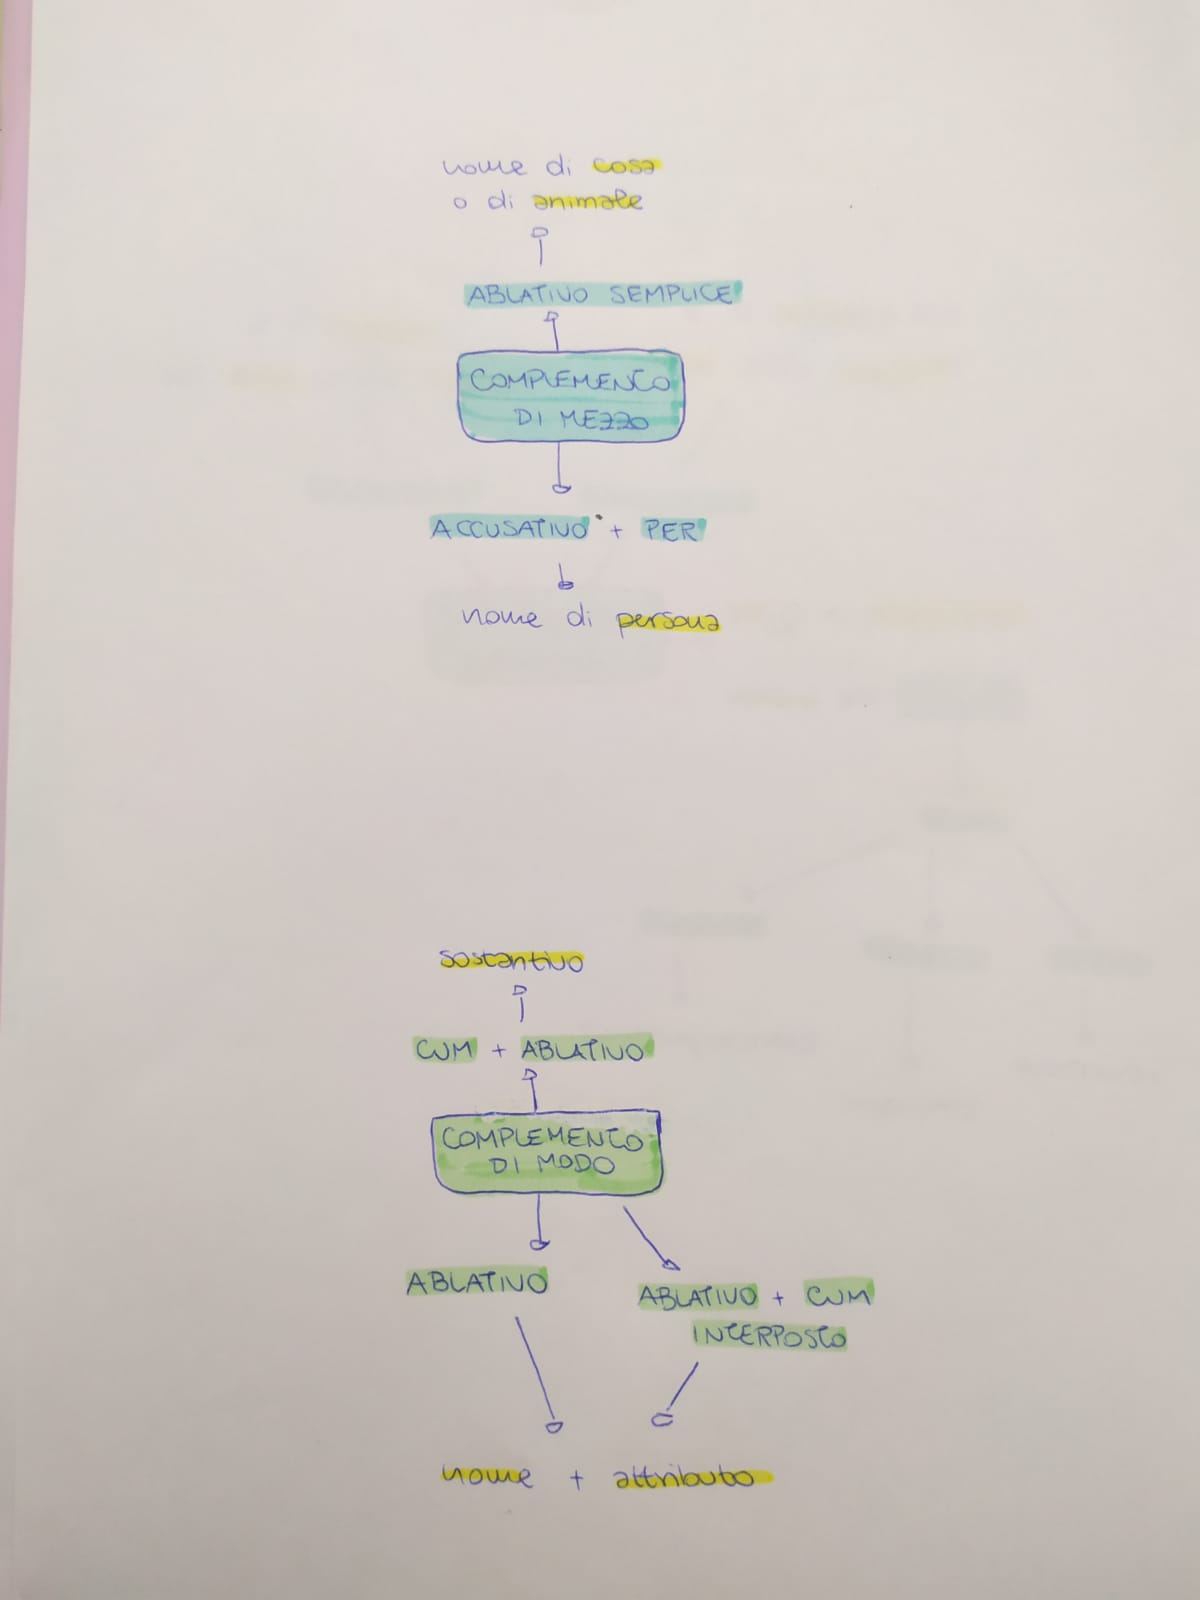 nome di cosa
o di animale
ABLATIVO SEMPLICE
COMPLEMENTO
DI MEZZO
ACCUSATIVO + PER
nome di persona
sostantivo
CUM + ABLATIVO
COMPLEMENTO
DI MODO
ABLATIVO
ABLATIVO + CUM
INTERPOSTO
nome + attributo